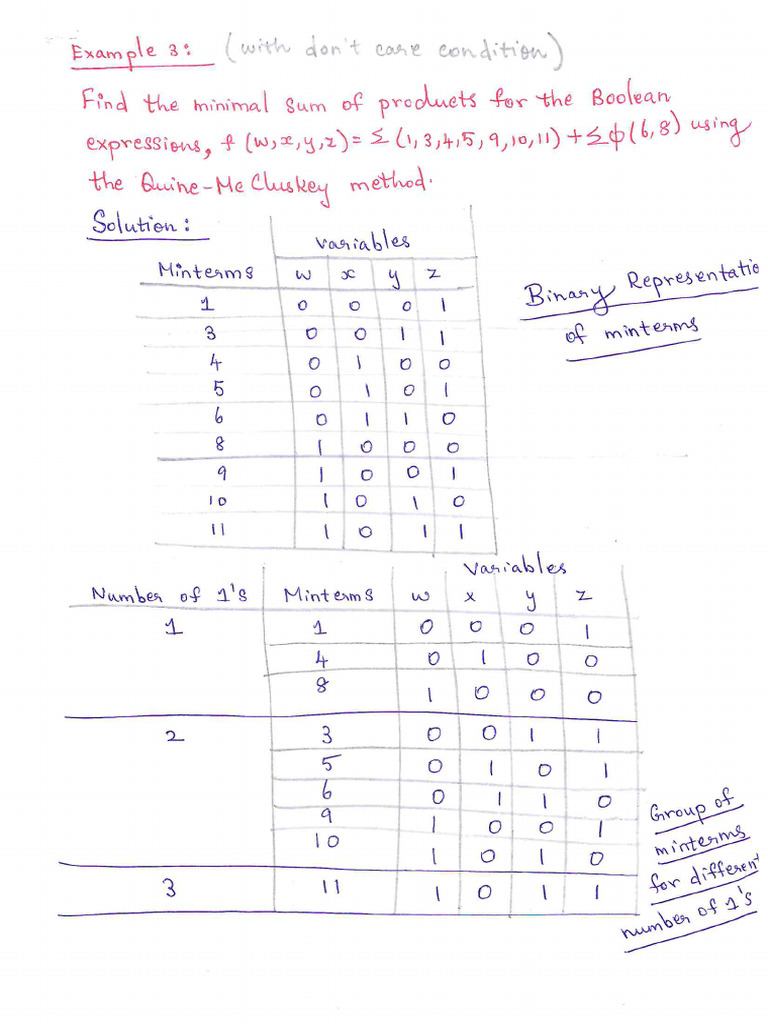 Example 3: (with don't care condition)
Find the minimal sum of products for the Boolean
expressions, f (w,x,y,z) = Σ (1,3,4,5,9,10,11) + Σϕ(6,8) using
the Quine-Mc Cluskey method.
Solution:
variables
Minterms w x y z
1 0 0 0 1
3 0 0 1 1
4 0 1 0 0
5 0 1 0 1
6 0 1 1 0
8 1 0 0 0
9 1 0 0 1
10 1 0 1 0
11 1 0 1 1
Binary Representatio
of minterms
Variables
Number of 1's Minterms w x y z
1 1 0 0 0 1
4 0 1 0 0
8 1 0 0 0
2 3 0 0 1 1
5 0 1 0 1
6 0 1 1 0
9 1 0 0 1
10 1 0 1 0
3 11 1 0 1 1
Group of
minterms
for different
number of 1's